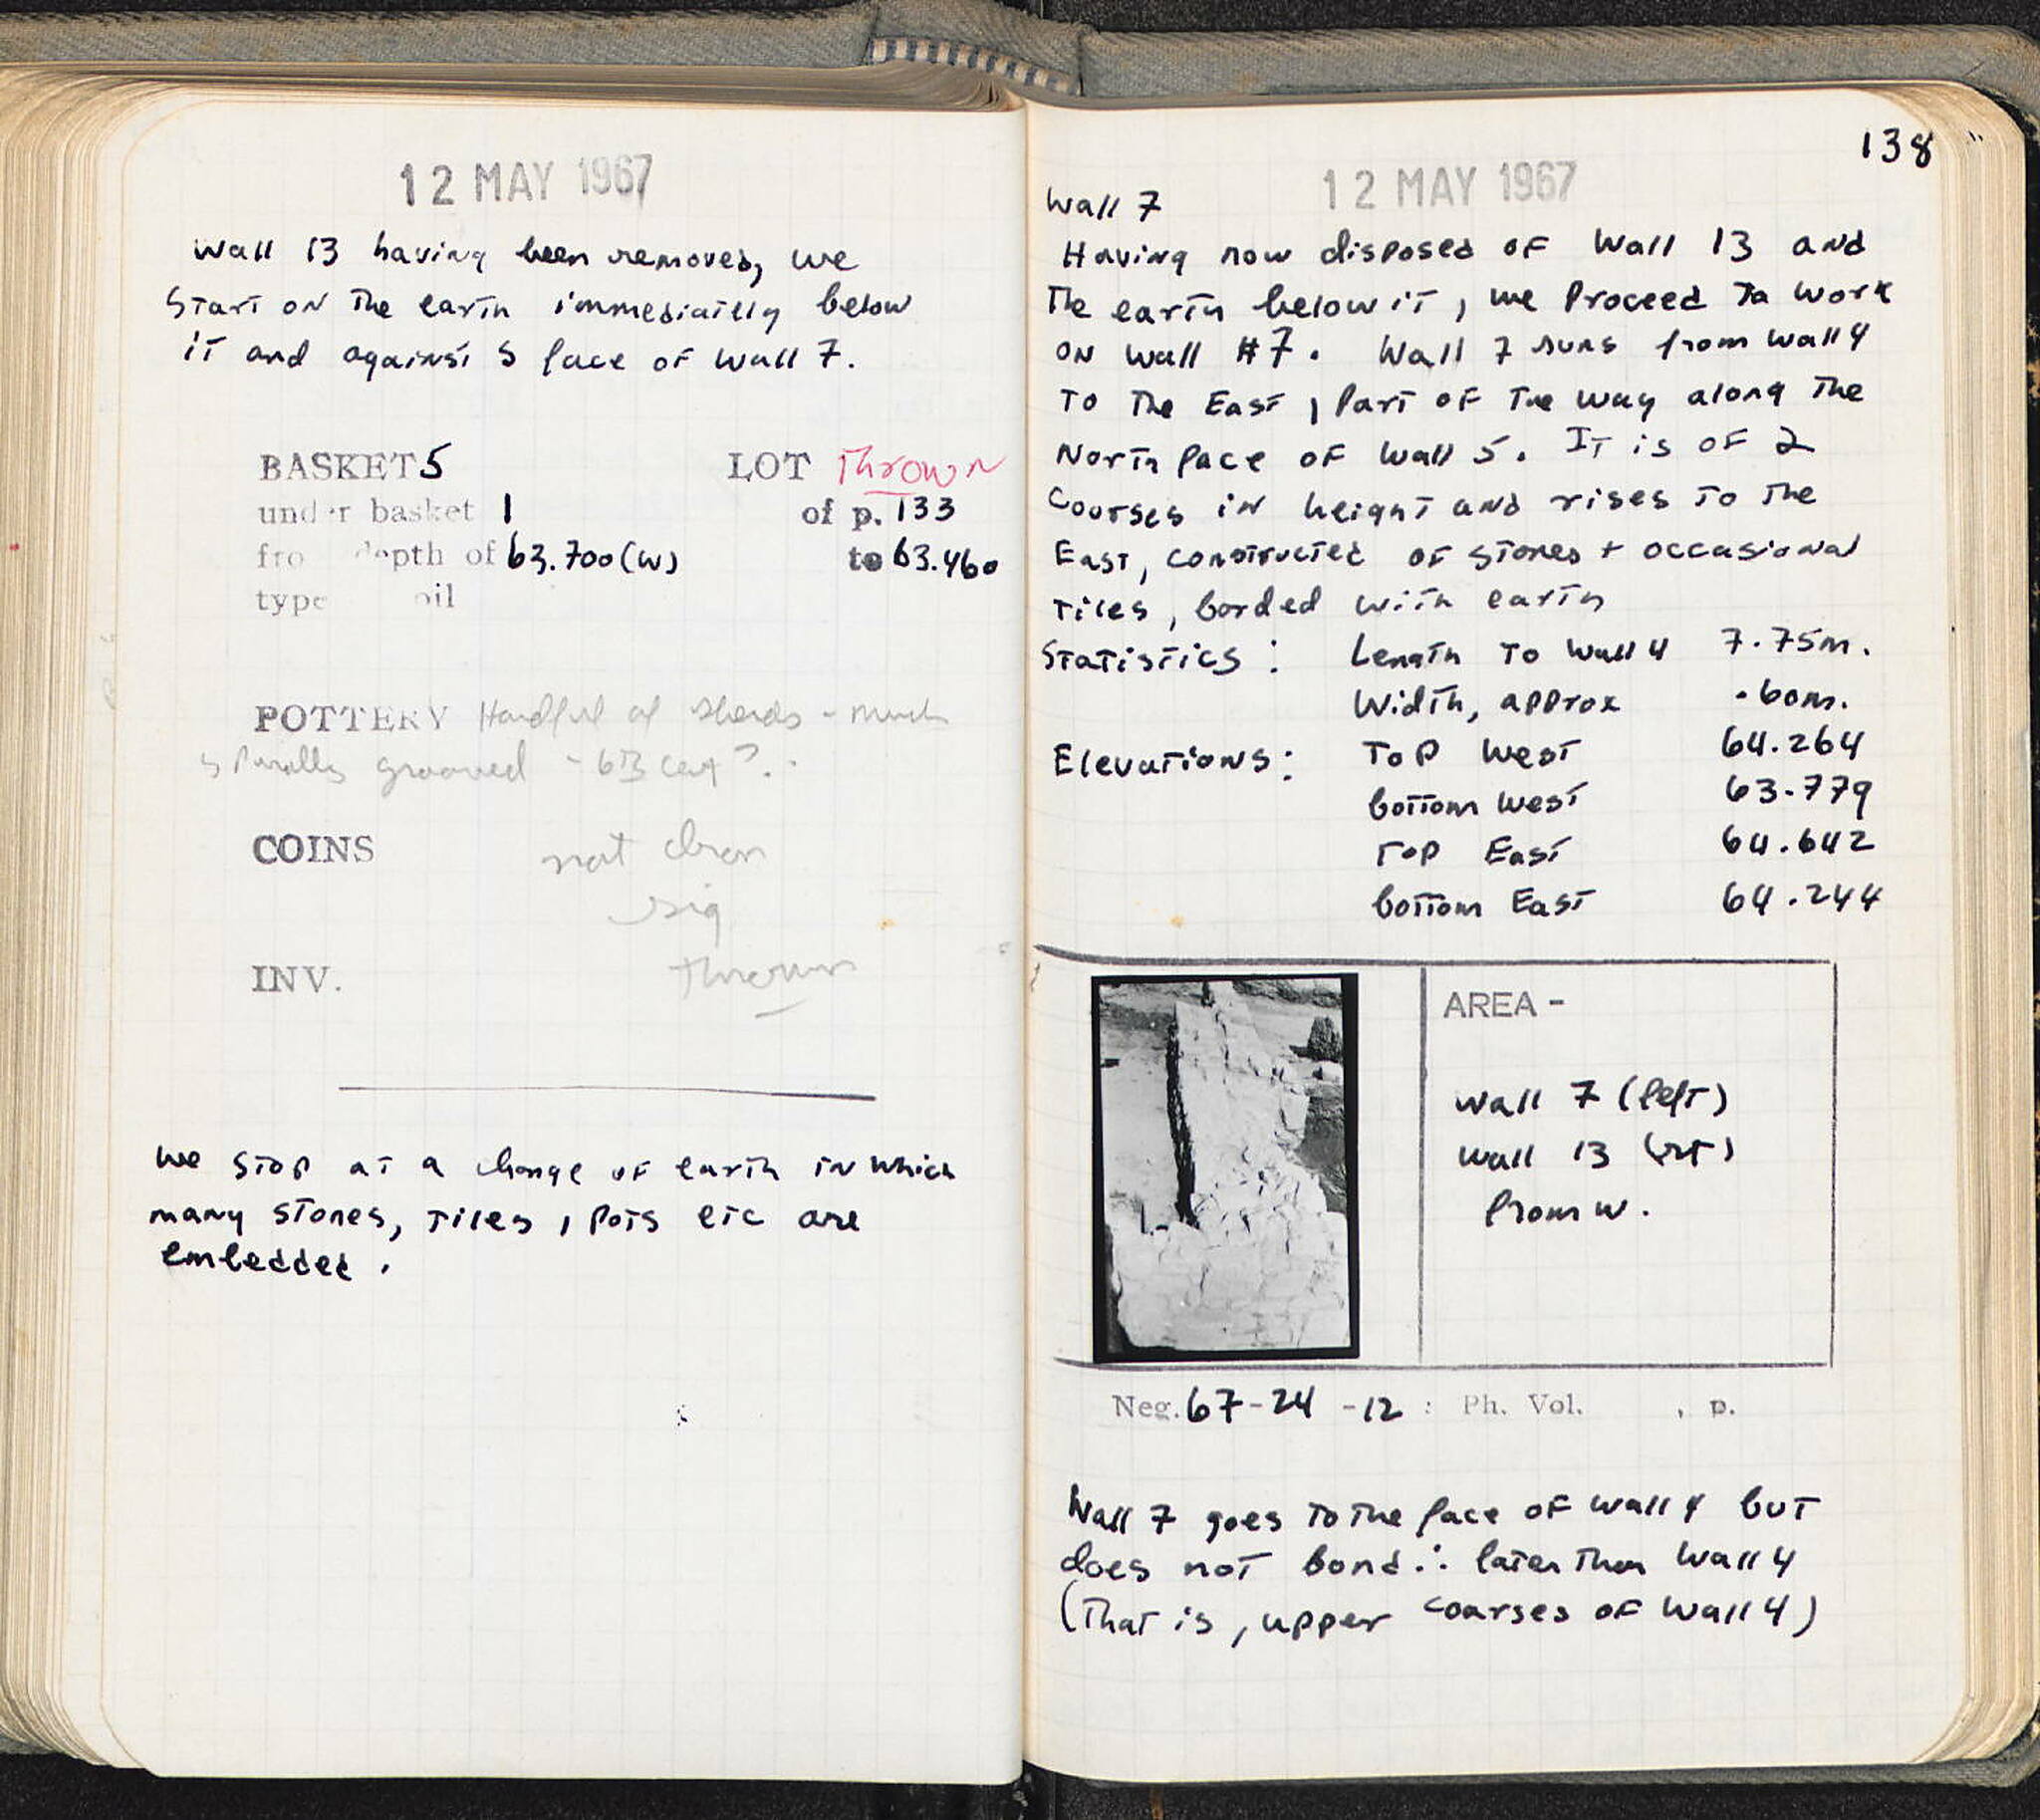 12 MAY 1967
Wall 13 having been removed, we
start on the earth immediatlly below
it and against S face of Wall 7.
BASKET 5 LOT Thrown
under basket 1 of p. 133
fro depth of 63.700(W) to 63.460
type oil
POTTERY Handful of sherds - much
spirally grooved - 6th cent?.
COINS not clean
sig
INV. Thrown
We stop at a change of earth in which
many stones, tiles, pots etc are
embedded.
138
12 MAY 1967
Wall 7
Having now disposed of Wall 13 and
the earth below it, we proceed to work
on Wall #7. Wall 7 runs from wall 4
to the East, part of the way along the
North face of Wall 5. It is of 2
courses in height and rises to the
East, constructed of stones + occasional
tiles, bonded with earth
Statistics: Length to Wall 4 7.75m.
Width, approx .60m.
Elevations: Top West 64.264
bottom West 63.779
Top East 64.642
bottom East 64.244
AREA -
Wall 7 (left)
Wall 13 (rt)
from W.
Neg. 67-24-12 : Ph. Vol. , p.
Wall 7 goes to the face of wall 4 but
does not bond ∴ later than Wall 4
(That is, upper coarses of Wall 4)